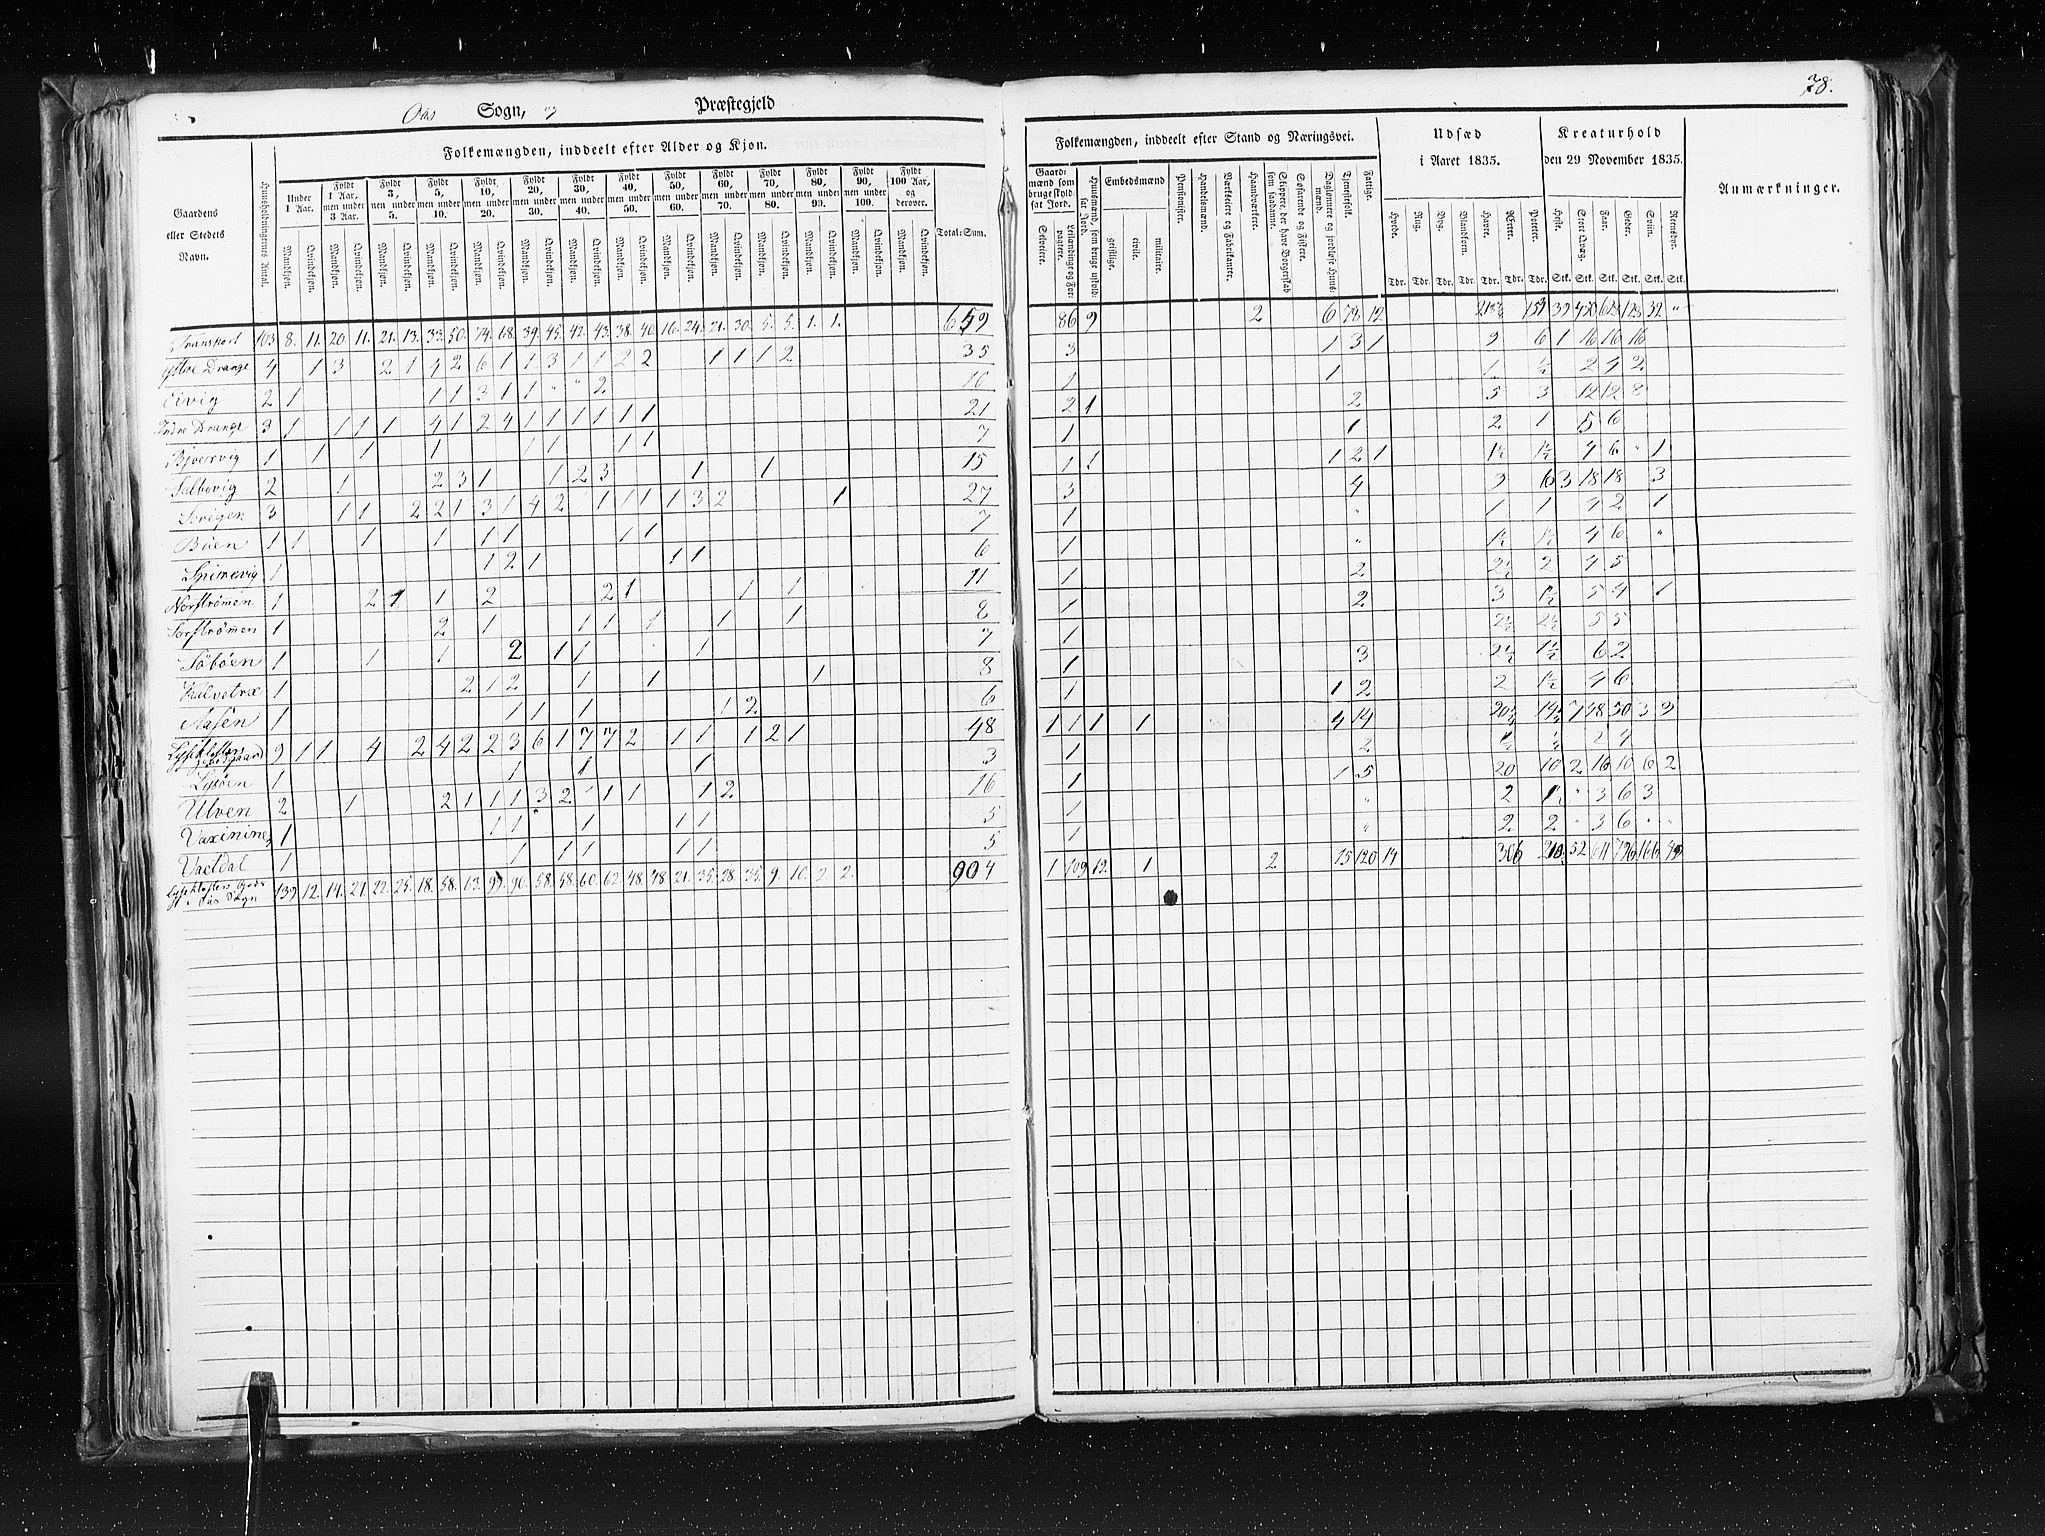 Oûs Sogn, Præstegjeld
78.
Folkemængden, inddeelt efter Alder og Kjøn.
Folkemængden, inddeelt efter Stand og Næringsvei.
Udsæd
i Aaret 1835.
Kreaturhold
den 29 November 1835.
Anmærkninger.
Gaardens
eller Stedets
Navn.
Huusholdningernes Antal.
Under
1 Aar.
Fyldt
1 Aar,
men under
3 Aar.
Fyldt
3,
men under
5.
Fyldt
5,
men under
10.
Fyldt
10,
men under
20.
Fyldt
20,
men under
30.
Fyldt
30,
men under
40.
Fyldt
40,
men under
50.
Fyldt
50,
men under
60.
Fyldt
60,
men under
70.
Fyldt
70,
men under
80.
Fyldt
80,
men under
90.
Fyldt
90,
men under
100.
Fyldt
100 Aar,
og
derover.
Total-Sum.
Mandkjøn. Qvindekjøn.
Gaard-
mænd som
bruge skyld-
sat Jord.
Selveiere.
Leilændinge og For-
pagtere.
Huusmænd, som bruge uskyld-
sat Jord.
Embedsmænd
geistlige. civile. militaire.
Pensionister.
Handelsmænd.
Værkeiere og Fabrikanter.
Haandværkere.
Skippere, der have Borgerskab
som saadanne.
Søfarende og Fiskere.
Daglønnere og jordløse Huus-
mænd.
Tjenestefolk.
Fattige.
Hvede. Rug. Byg. Blandkorn. Havre. Ærter. Poteter.
Heste. Stort Qvæg. Faar. Geder. Sviin. Reensdyr.
Tdr. Tdr. Tdr. Tdr. Tdr. Tdr. Tdr. Stk. Stk. Stk. Stk. Stk. Stk.
Transport 103 8. 11. 20. 11. 21. 13. 33. 50. 74. 68. 39. 45. 42. 43. 38. 40. 16. 24. 21. 30. 5. 5. 1. 1. 659 86 9 2 6 78 12
Ytre Drange 4 1 3 2 1 4 2 6 1 1 3 1 1 2 2 1 1 1 2 35 3 1 3 1 9 6 1 16 16 16
Eivig 2 1 1 1 3 1 1 " " 2 10 1 1 1 ½ 2 4 2
Indre Drange 3 1 1 1 1 4 1 2 4 1 1 1 1 1 1 21 2 1 2 5 3 12 12 8
1 1 1 1 1 1 1 1 7 1 1 2 1 5 6
2 1 2 3 1 1 2 3 1 1 15 1 1 1 2 1 1½ 1½ 4 6 " 1
3 1 1 2 2 1 3 1 4 2 1 1 1 1 3 2 1 27 3 4 9 6 3 18 18 3
Büen 1 1 1 1 1 1 1 1 7 1 " 1 1 4 2 1
Spimevig 1 1 2 1 1 1 6 1 " 1½ 1½ 4 6 "
Norstrømen 1 2 1 1 2 2 1 1 1 11 1 2 2½ 2 4 5
Sorstrømen 1 2 1 1 1 1 1 1 8 1 2 3 1½ 5 4 1
Söböen 1 1 1 2 1 1 1 7 1 2½ 2½ 5 5
Kalvetræ 1 2 1 2 1 1 1 8 1 3 2½ 1½ 6 2
Aasen 1 1 1 1 1 2 6 1 1 2 2 1½ 4 6
9 1 1 4 2 4 2 2 3 6 1 7 7 2 1 1 1 2 1 48 1 1 1 1 4 14
Lysöen 1 1 1 1 3 1 2 ½ ½ 2 4
Ulven 2 1 2 1 1 1 3 2 1 1 1 1 2 16 1 1 5 20 10 2 16 10 6 2
1 1 1 1 1 1 5 1 " 2 " 3 6 3
Vaetdal 1 1 1 1 1 1 5 1 " 2 2 " 3 6 " "
Lysekl​osters Gods
i Oûs Sogn 139 12. 14. 21. 22. 25. 18. 58. 90. 58. 58. 60. 62. 48. 48. 21. 35. 28. 35. 9. 10. 2 2. 904 1 109 12. 1 2 15 120 14 306 52